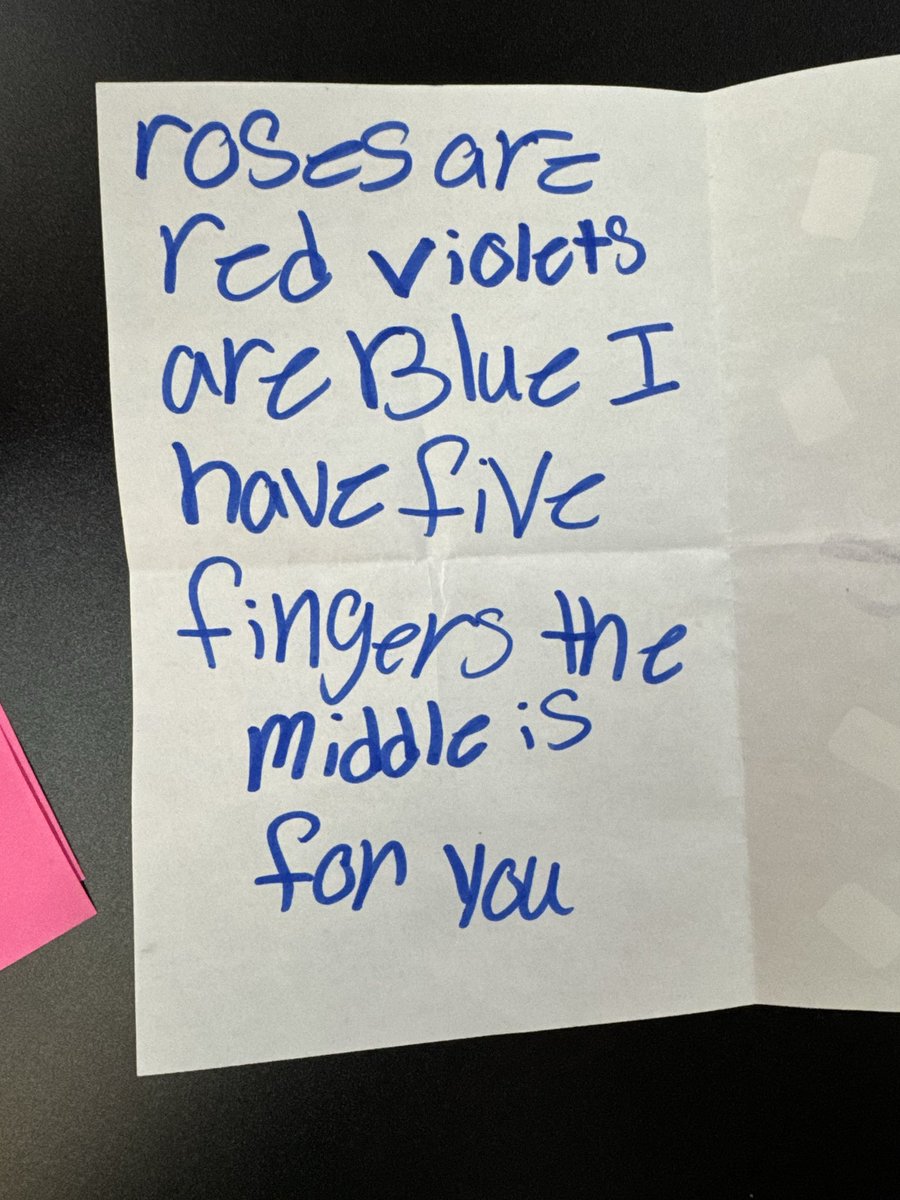 roses are
red violets
are Blue I
have five
fingers the
middle is
for you